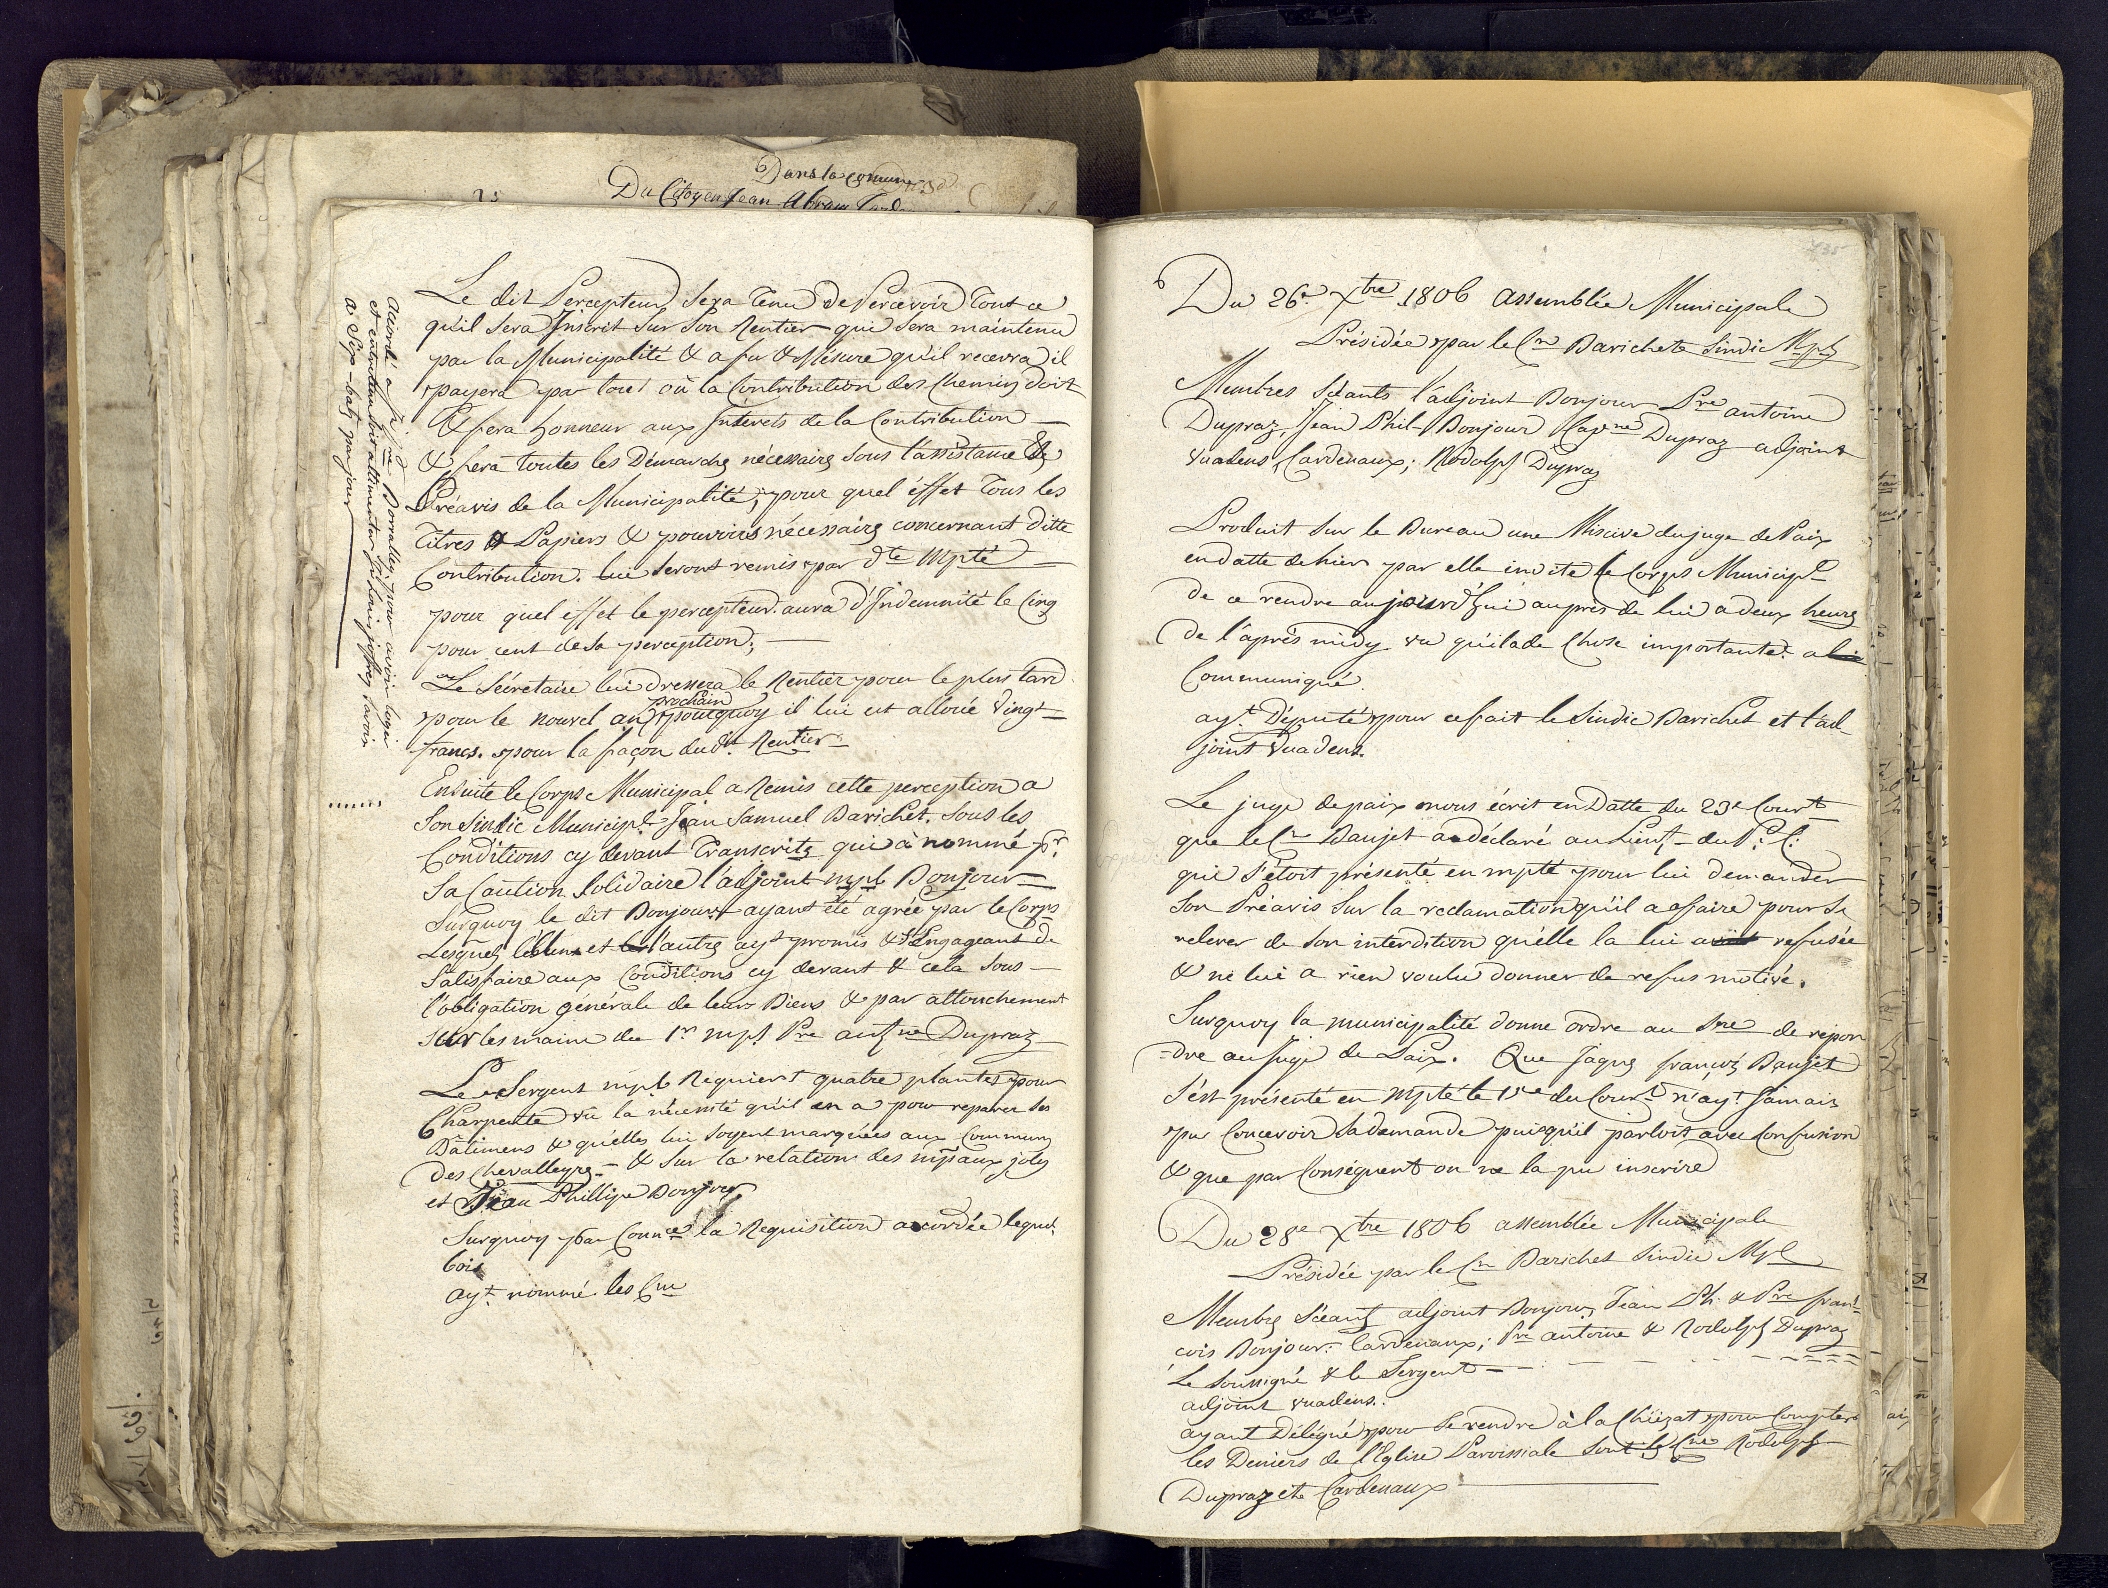 Dans la comune
Du Citoyen Jean Abram
Le dit Percepteur Sera Tenu de Percevoir Tout ce
qu'il Sera Inscrit Sur Son Rentier qui Sera maintenu
par la Municipalité & a fur & Mésure qu'il recevra il
payera par tout où la Contribution des Chemins doit
& fera honneur aux Interets de la Contribution —
& fera toutes les Démarches nécessaires Sous l'assistance &
Préavis de la Municipalité, pour quel éffet Tous les
Titres & Papiers & pouvoirs nécessaires concernant ditte
Contribution. lui Seront remis par dte Mpté —
pour quel effet le percepteur aura d'Indemnité le Cinq
pour cent de Sa perception; —
Le Sécretaire lui dressera le Rentier pour le plus tard
prochain
pour le nouvel an pourquoy il lui est alloué Vingt
francs. pour la façon du dt Rentier
Ensuite le Corps Municipal a Remis cette perception a
Son Sindic Municipl Jean Samuel Barichet. Sous les
Conditions cy devant Transcrites qui à nommé pr
Sa Caution Solidaire l'adjoint mpl Bonjour
Surquoy le dit Bonjour ayant été agrée par le Corps
Lesquels l'un et l'autre ayt promis & S'Engageant de
Satisfaire aux Conditions cy devant & cela Sous —
l'obligation générale de leurs Biens & par attouchement
Sur les mains du 1r mpl Pre antne Dupraz
Le Sergent mpl Requiert quatre plantes pour
Charpente vu la nécessité qu'il en a pour reparer Ses
Bâtimens & qu'elles lui Soyent marquées aux Communs
des Chevalleyres — & Sur la relation des mpaux joly
et Jean Phillipe Bonjour
Surquoy par Connce la Requisition accordée lequt
bois
ayt nommé les Cns
Acordé a Borralley pour avoir logé
a Six batz par jour
Du 26e Xbre 1806 assemblée Municipale
Présidée par le Cn Barichet Sindic Mpl
Membres Séants l'adjoint Bonjour Pre antoine
Dupraz, Jean Phil Bonjour Dupraz adjoint
Vuadens Cardenaux; Rodolph Dupraz
Produit Sur le Bureau une Miscive du juge de Paix
en datte de hier par elle invite le Corps Municipl
de ce rendre aujourd'hui auprès de lui a deux heures
de l'après midy vu qu'il a de Chose importante a
Communiqué
ayt Député pour ce fait le Sindic Barichet et l'ad
joint Vuadens.
Le juge de paix nous écrit en Datte du 23e Court
que le Cn Baujet a déclaré au Lieut du P: C:
qui S'étoit présenté en mpté pour lui demander
Son Préavis Sur la reclamation qu'il a afaire pour Se
relever de Son interdition qu'elle la lui avoit refusée
& ne lui a rien voulu donner de refus motivé.
Surquoy la municipalité donne ordre au Sre de répon
-dre au Juge de Paix. Que Jaques françois Baujet
S'est présenté en Mpté le du Court n'ayt Jamais
pu Concevoir Sa demande puisqu'il parloit avec Confusion
& que par Conséquent on ne la pu inscrire
Du 28e Xbre 1806 assemblée Municipale
Présidée par le Cn Barichet Sindic Mpl
Membres Séants adjoint Bonjour, Jean Ph. & Pre fran-
cois Bonjour. Cardenaux; Pre antoine & Rodolph Dupraz
Le Soussigné & le Sergent —
adjoint Vuadens.
ayant Délégué pour Se rendre à la Chiésat pour Compter
les Deniers de l'Eglise Paroissiale Sont les Cns Rodolph
Dupraz et Cardenaux